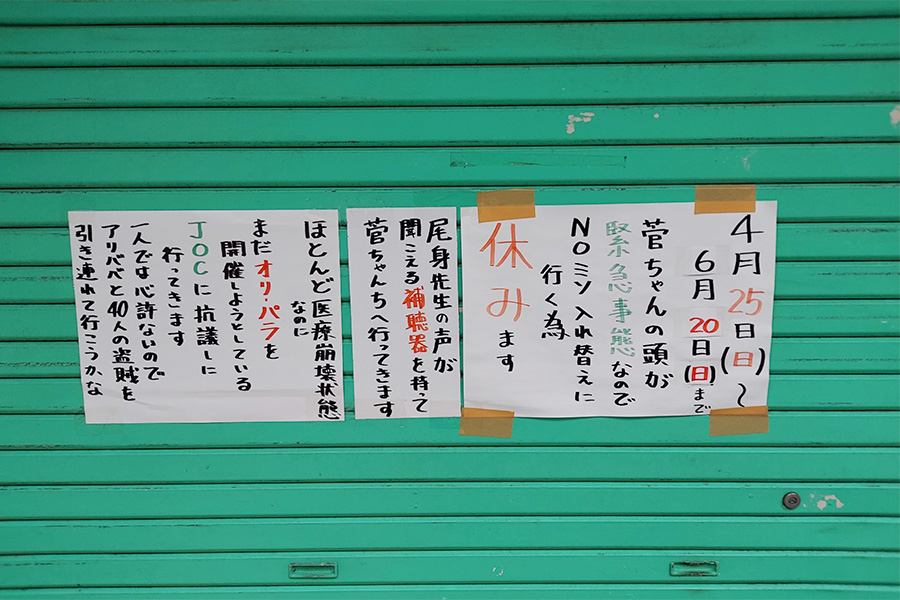 4月25日(日)～
6月20日(日)まで
菅ちゃんの頭が
緊急事態なので
NOミソ入れ替えに
行く為
休みます
尾身先生の声が
聞こえる補聴器を持って
菅ちゃんちへ行ってきます
ほとんど医療崩壊状態
なのに
まだオリ・パラを
開催しようとしている
JOCに抗議しに
行ってきます
一人では心許ないので
アリババと40人の盗賊を
引き連れて行こうかな